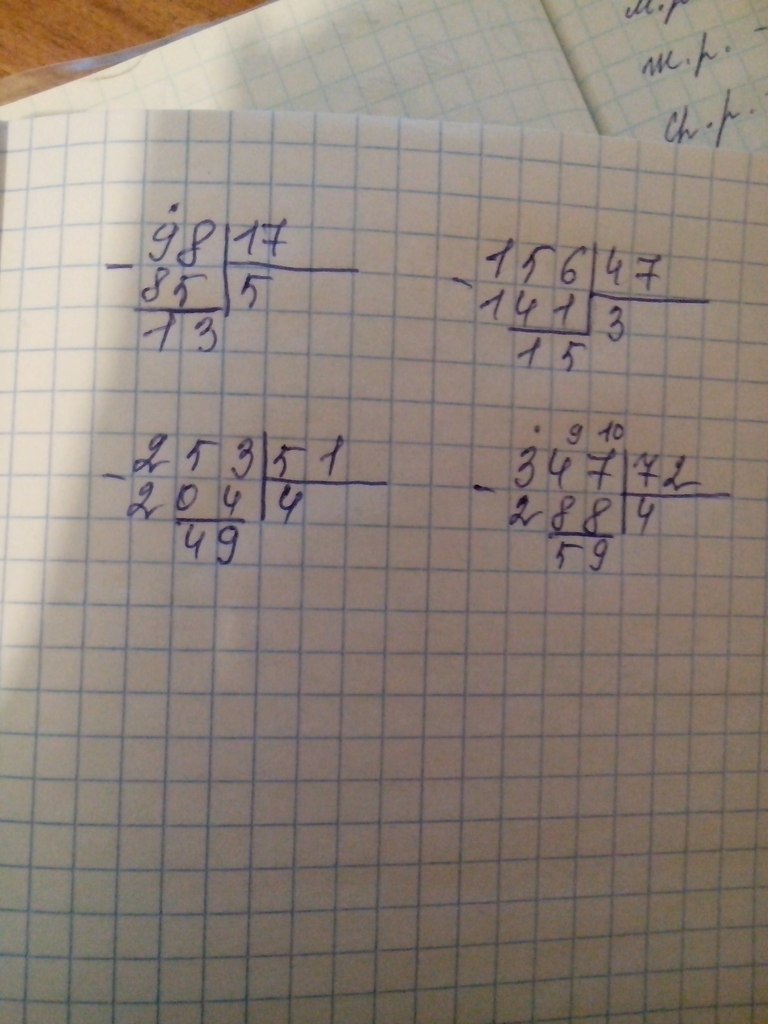 м.р
ж.р. -
ср.р.
- 98 | 17
85 | 5
13
- 156 | 47
141 | 3
15
- 253 | 51
204 | 4
49
9 10
- 347 | 72
288 | 4
59